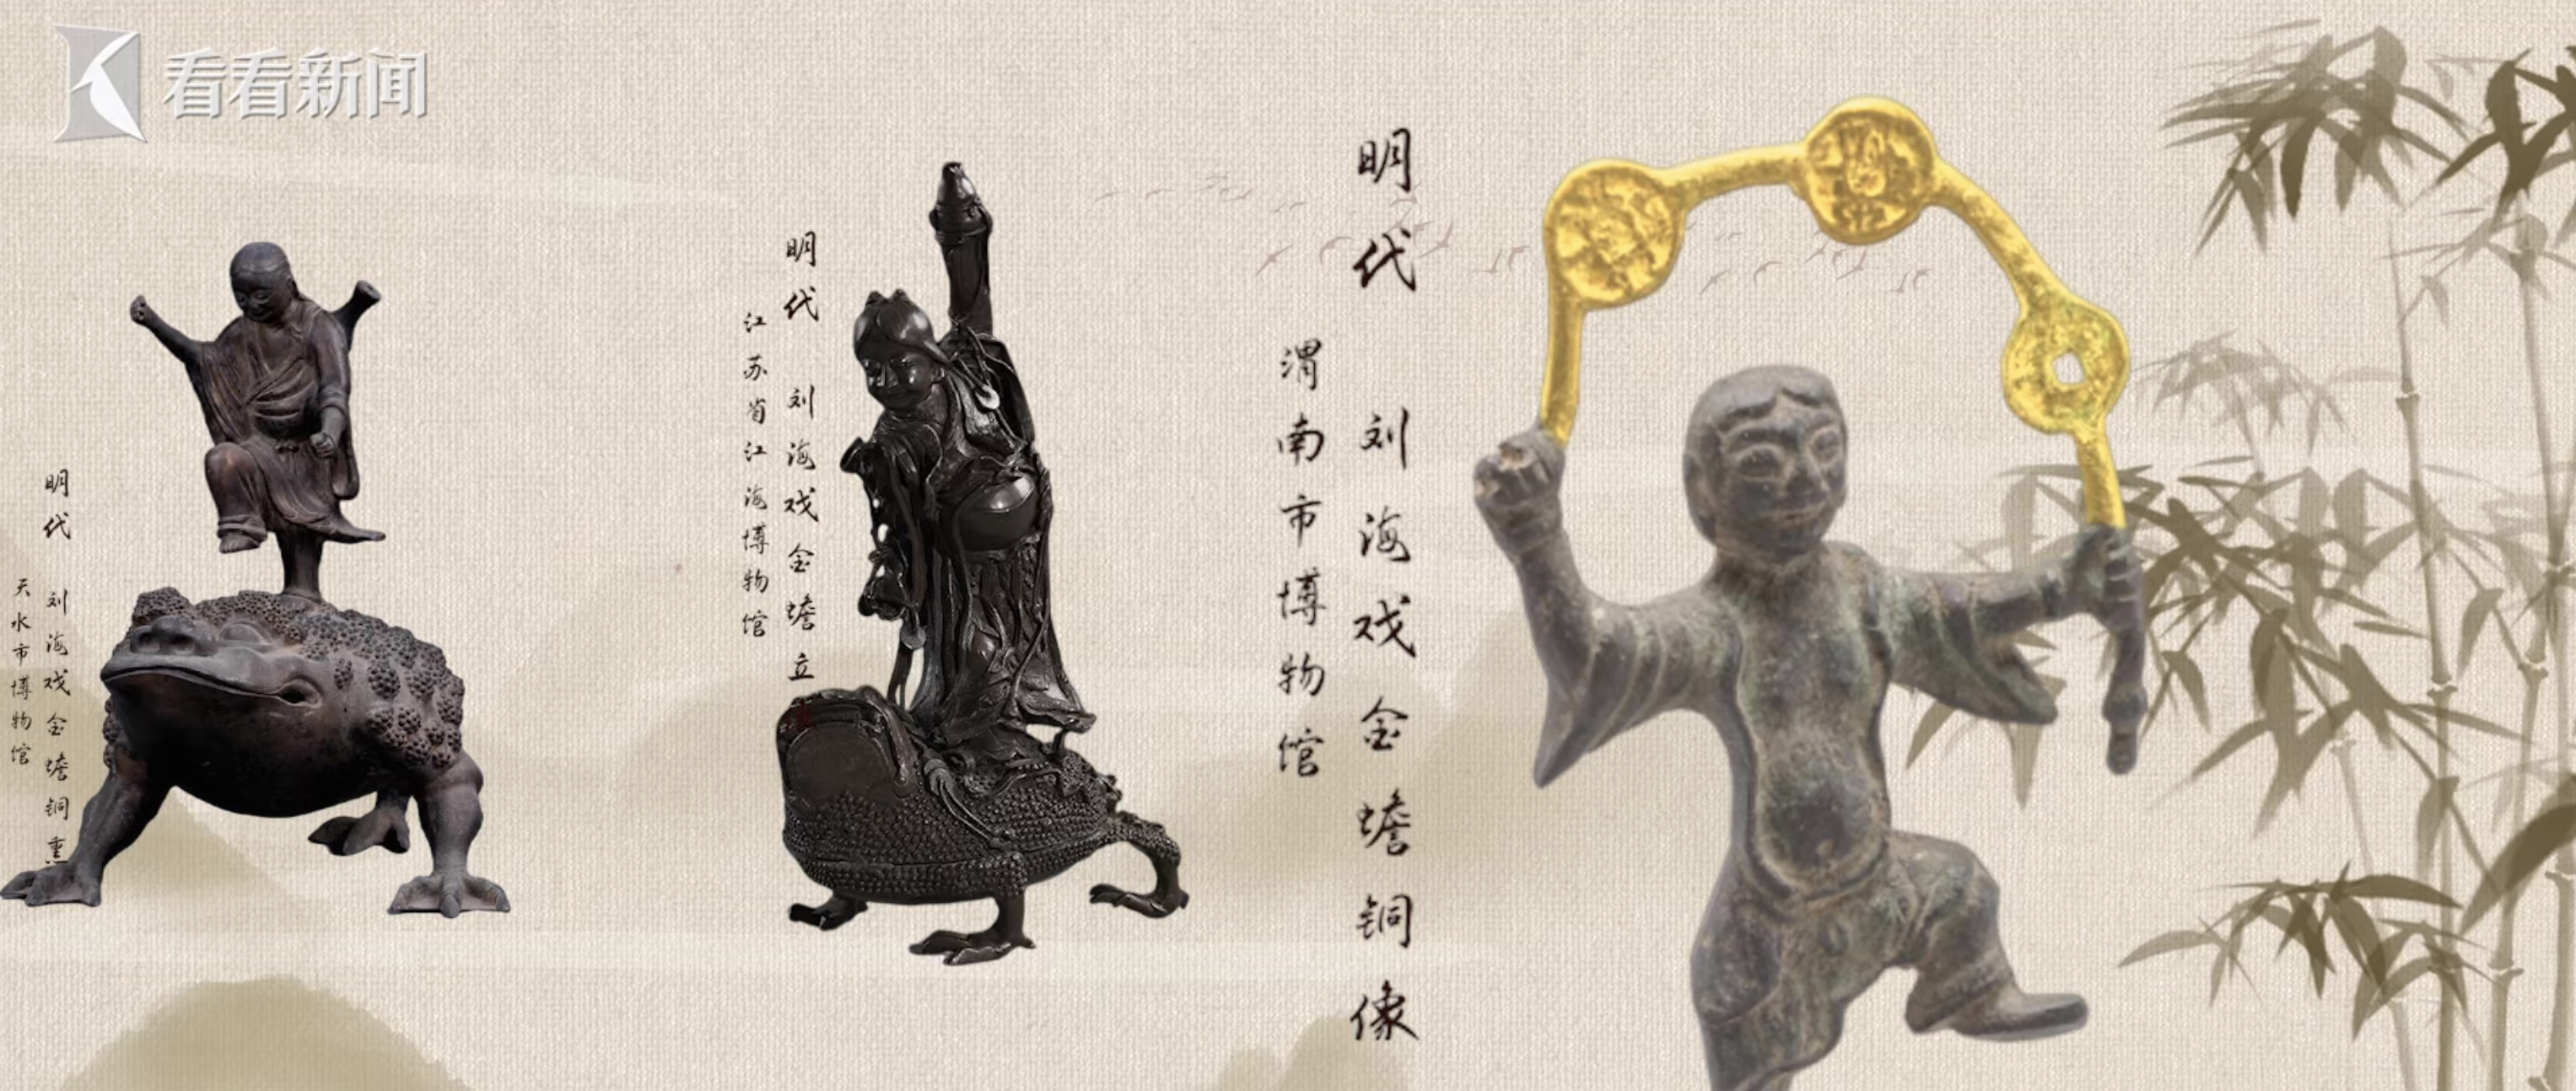 看看新闻
明代 刘海戏金蟾铜熏
天水市博物馆
明代 刘海戏金蟾立
江苏省江海博物馆
明代 刘海戏金蟾铜像
渭南市博物馆